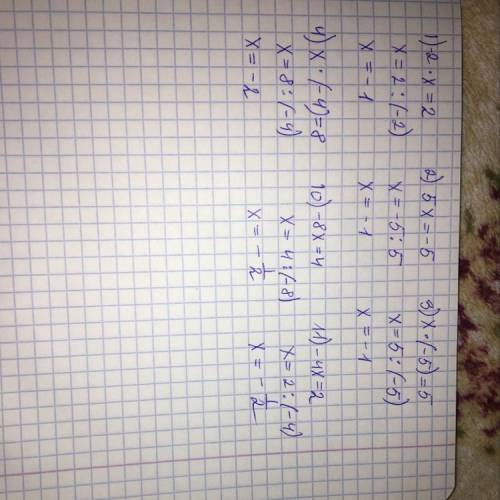 1) -2 · x = 2
x = 2 : (-2)
x = -1
2) 5x = -5
x = -5 : 5
x = -1
3) x · (-5) = 5
x = 5 : (-5)
x = -1
4) x · (-4) = 8
x = 8 : (-4)
x = -2
10) -8x = 4
x = 4 : (-8)
x = - 1/2
11) -4x = 2
x = 2 : (-4)
x = - 1/2